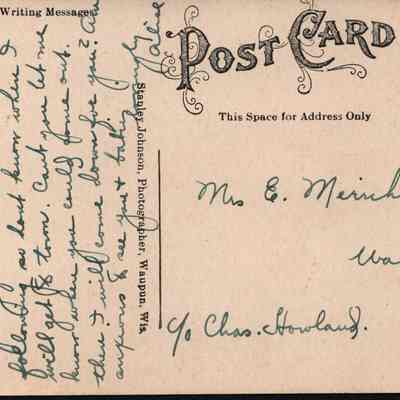 Writing Messages
POST CARD
This Space for Address Only
following so dont know when I
will get to town. Cant you let me
know when you could come out.
then I will come down for you?
anxious to see you & baby
Alice
Stanley Johnson, Photographer, Waupun, Wis.
Mrs E. Merrick
Wa
c/o Chas. Howland.